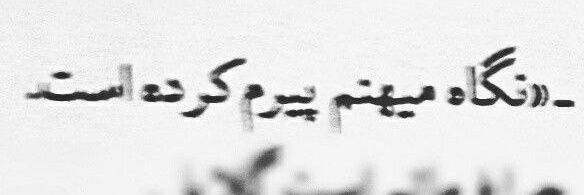 ـ «نگاه میهنم پیرم کرده است.